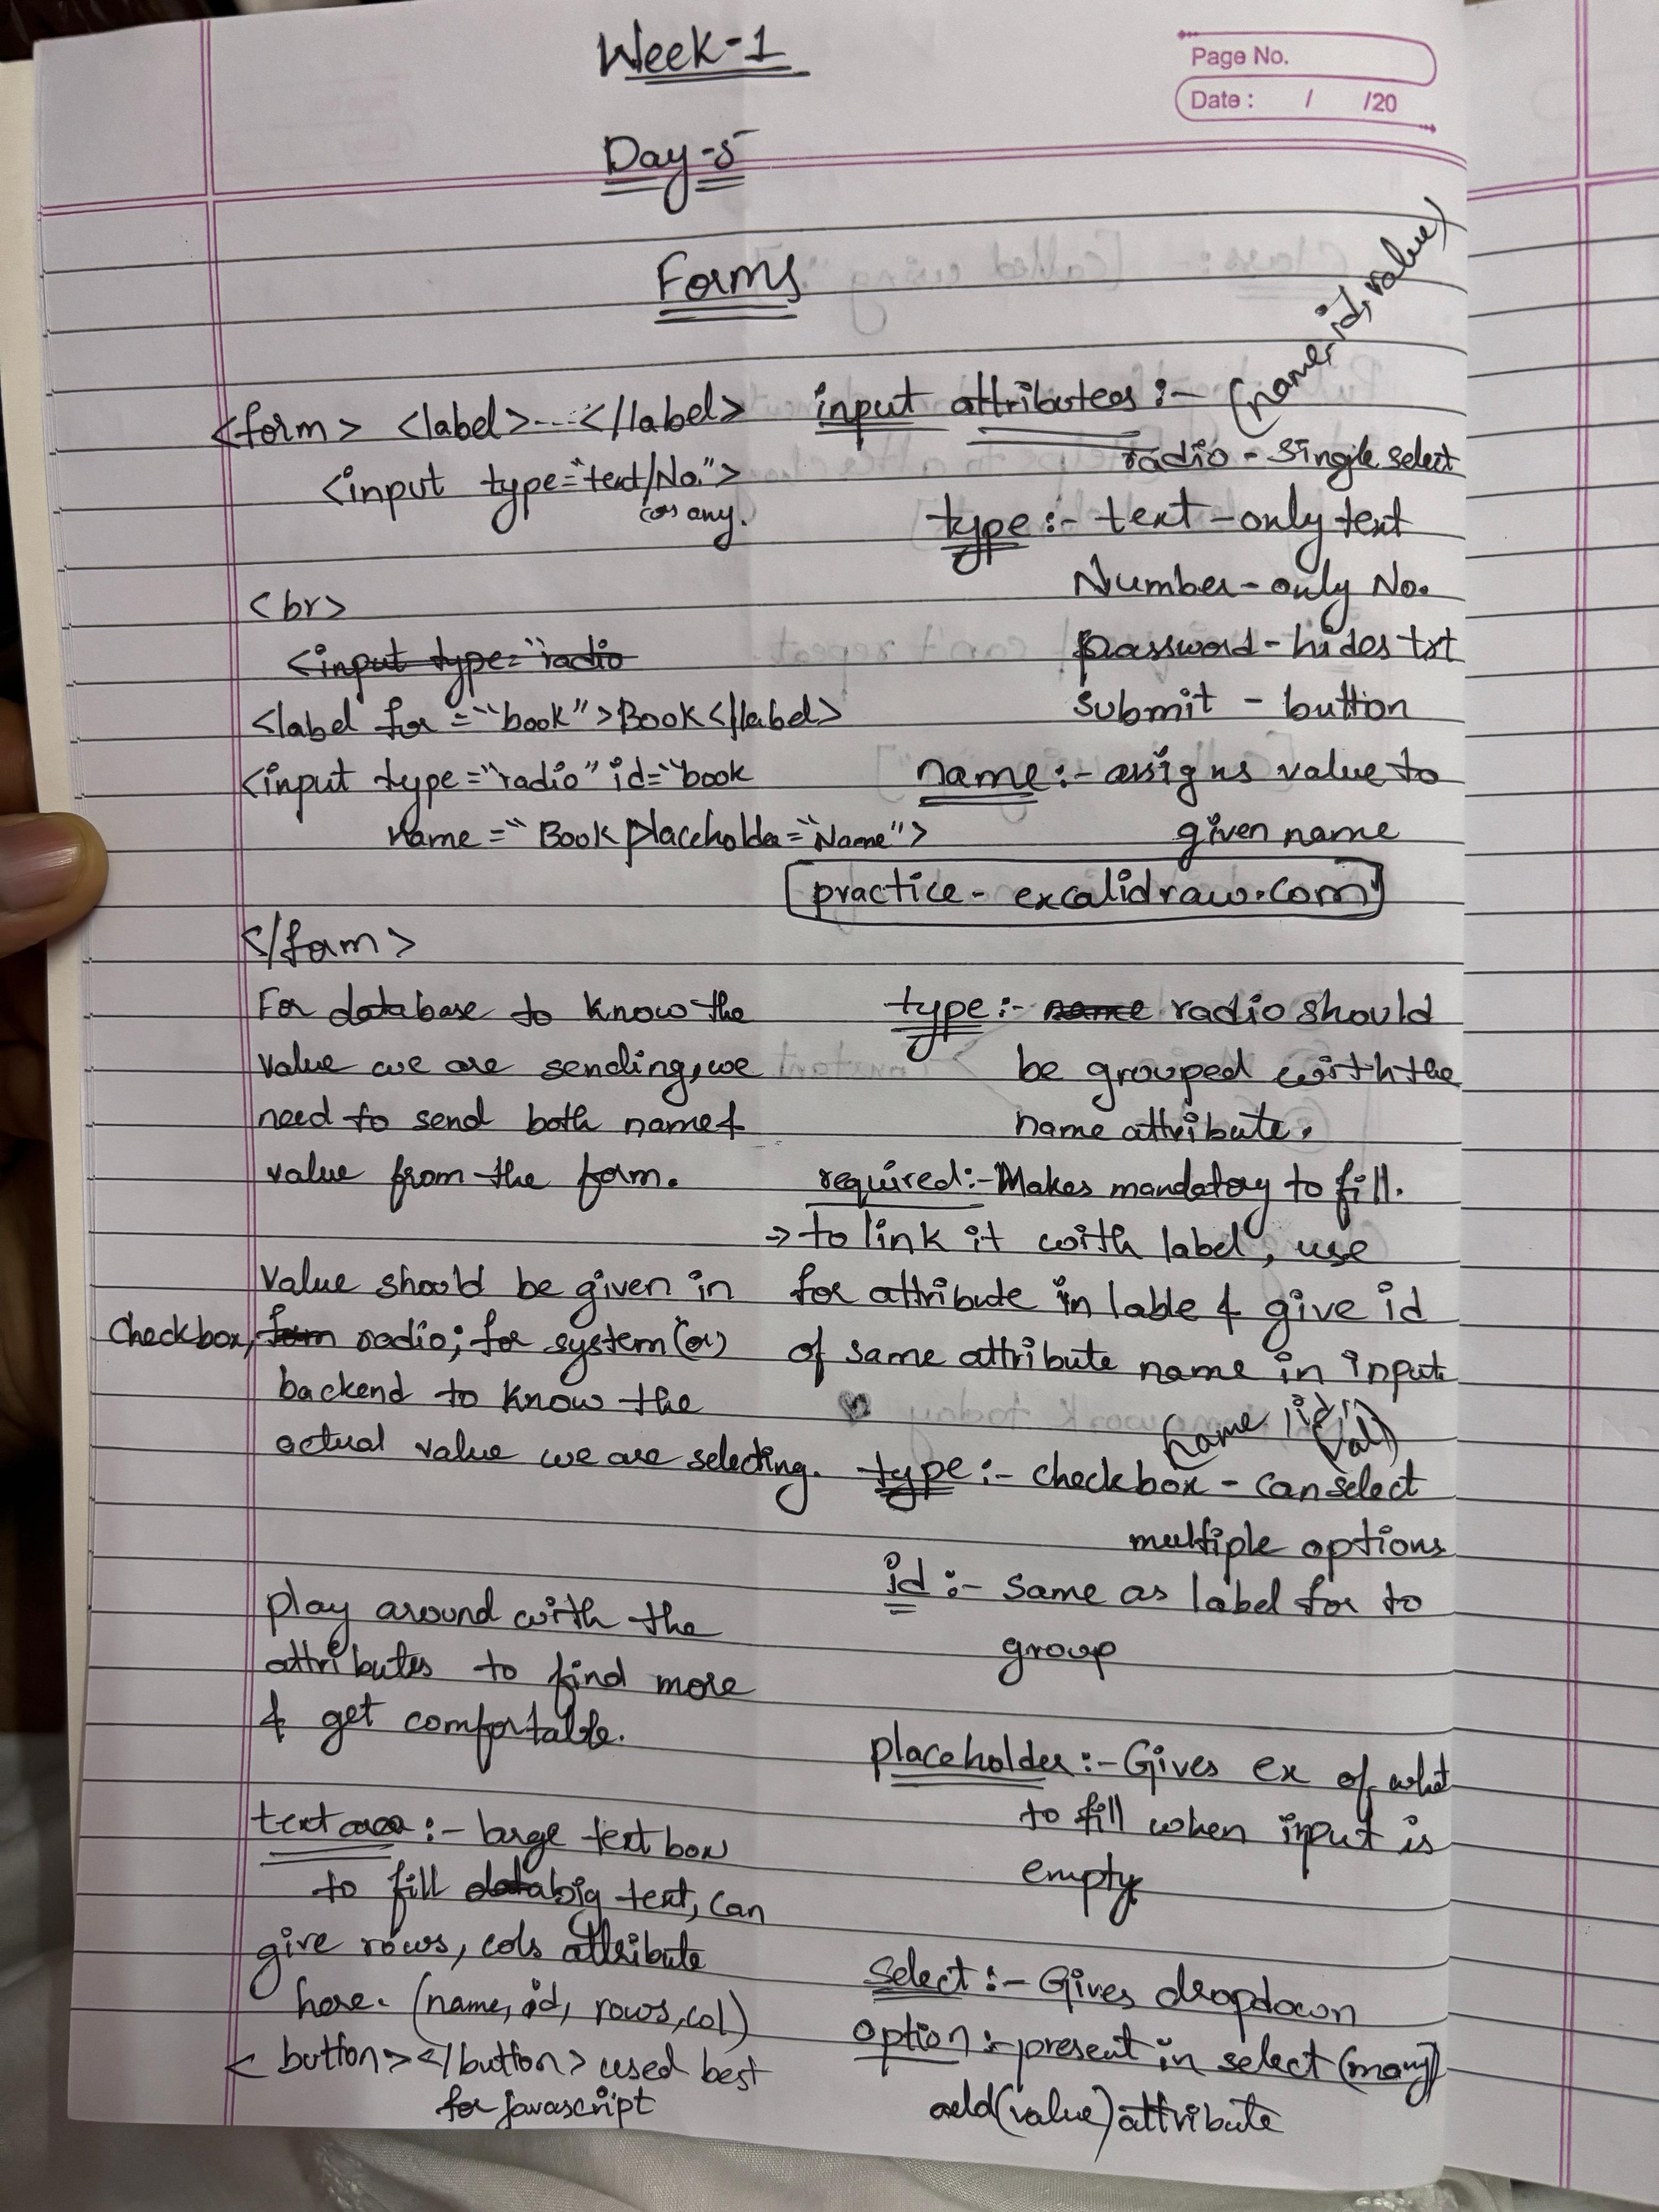 Week-1
Page No.
Date : / /20
Day-5
Forms
<form> <label>----</label>
<input type="text/No.">
(or) any.
<br>
<input type="radio
<label for="book">Book</label>
<input type="radio" id="book
name="Book placeholder="Name">
</form>
For database to know the
value we are sending, we
need to send both name &
value from the form.
Value should be given in
checkbox, form radio; for system (or)
backend to know the
actual value we are selecting.
play around with the
attributes to find more
& get comfortable.
text area :- large text box
to fill data big text, can
give rows, cols attribute
here. (name, id, rows, col)
< button></button> used best
for javascript
input attributes :- (name, id, value)
radio - single select
type :- text - only text
Number - only No.
password - hides txt
submit - button
name :- assigns value to
given name
practice - excalidraw.com
type :- name radio should
be grouped with the
name attribute.
required :- Makes mandatory to fill.
→ to link it with label, use
for attribute in lable & give id
of same attribute name in input
(name, id, val)
type :- checkbox - can select
multiple options
id :- same as label for to
group
placeholder :- Gives ex of what
to fill when input is
empty
select :- Gives dropdown
option :- present in select (many)
add (value) attribute